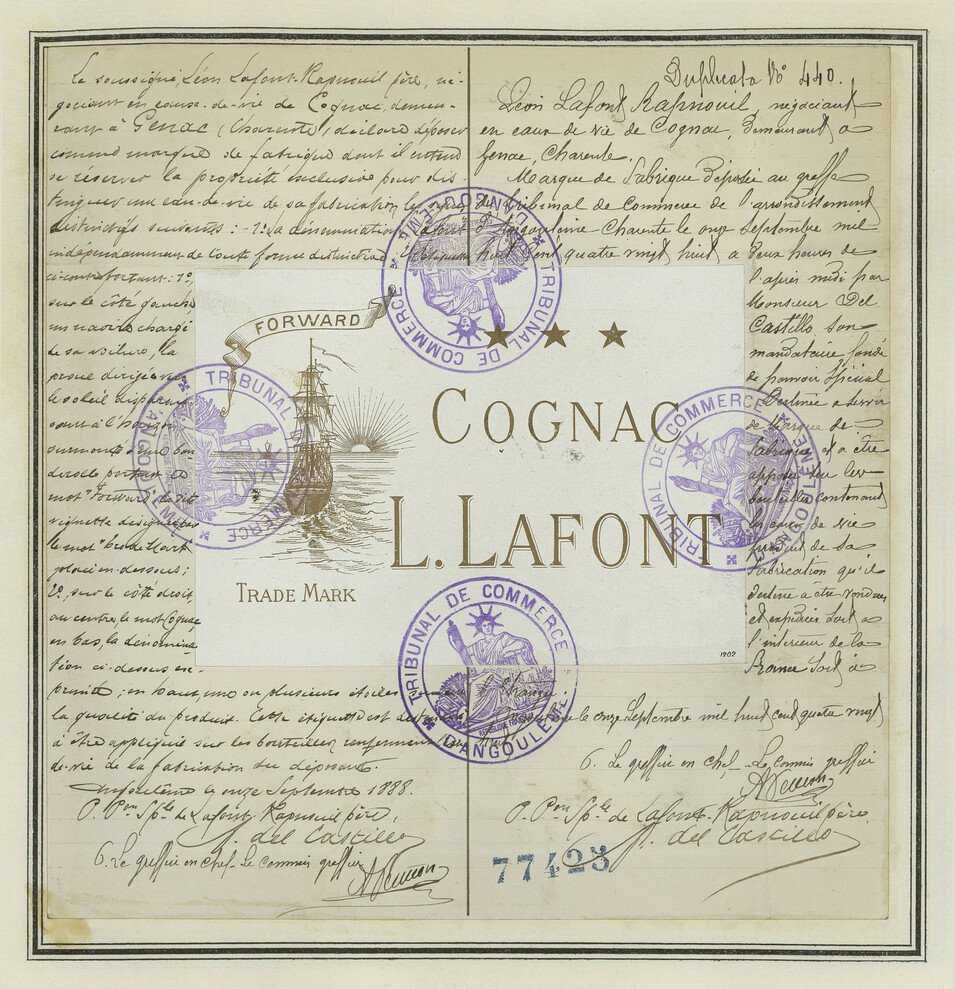 Le soussigné, Léon Lafont-Rapnouil père, né-
gociant en eaux-de-vie de Cognac, demeu-
rant à Genac (Charente), déclare déposer
comme marque de fabrique dont il entend
se réserver la propriété exclusive pour dis-
tinguer une eau-de-vie de sa fabrication les signes
distinctifs suivants : - 1º la dénomination Lafont
indépendamment de toute forme distinctive
ci-contre portant : 1º,
sur le côté gauche,
un navire chargé
de sa voilure, la
proue dirigée vers
le soleil disparais-
sant à l'horizon,
surmonté d'une ban-
derole portant ce
mot "Forward", la dite
vignette désignée par
le mot "Trade Mark"
placé en-dessous ;
2º, sur le côté droit,
au centre, le mot Cognac,
en bas, la dénomina-
tion ci-dessus ex-
primée ; en haut une ou plusieurs étoiles
la qualité du produit. Cette étiquette est destinée
à être appliquée sur les bouteilles renfermant
de-vie de la fabrication du déposant.
Angoulême le onze Septembre 1888.
P. Pon Sple de Lafont-Rapnouil père,
J. del Castillo
G. Le greffier en chef - Le commis greffier
Duplicata Nº 440.
Léon Lafont Rapnouil, négociant
en eaux de vie de Cognac, Demeurant à
Genac, Charente.
Marque de Fabrique Déposée au greffe
du Tribunal de Commerce de l'arrondissement
d'Angoulême Charente le onze Septembre mil
huit cent quatre vingt huit à Deux heures de
l'après midi par
Monsieur Del
Castillo son
mandataire fondé
de pouvoir Spécial
Destinée à servir
de Marque de
Fabrique et à être
apposée sur les
bouteilles contenant
les eaux de vie
produit de sa
Fabrication qu'il
destine à être vendues
et expédiées soit à
l'intérieur de la
France soit à
l'étranger.
Angoulême le onze Septembre mil huit cent quatre vingt
huit
G. Le greffier en chef - Le Commis greffier
P. Pon Sple de Lafont-Rapnouil père
J. del Castillo
77423
FORWARD
COGNAC
L. LAFONT
TRADE MARK
1902
TRIBUNAL DE COMMERCE D'ANGOULÊME
TRIBUNAL DE COMMERCE D'ANGOULÊME
TRIBUNAL DE COMMERCE D'ANGOULÊME
TRIBUNAL DE COMMERCE D'ANGOULÊME